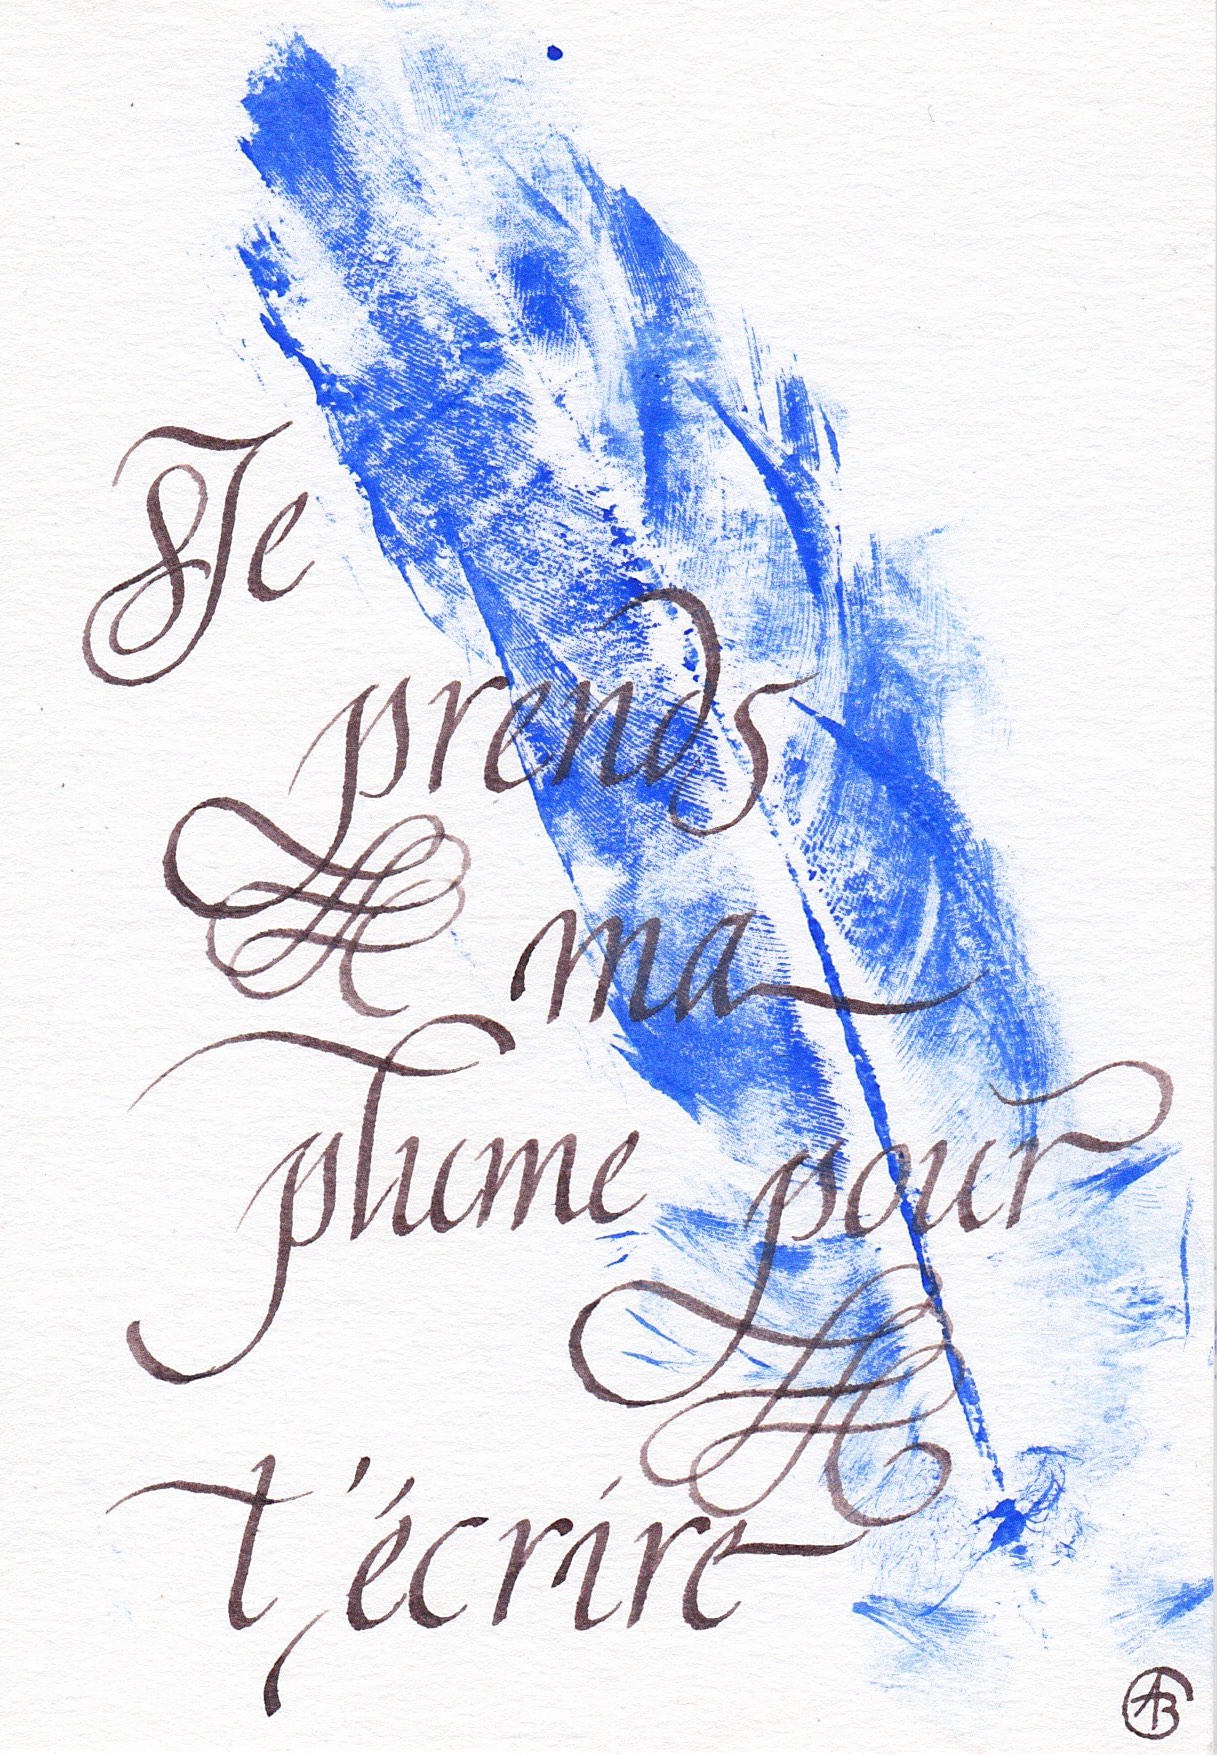 Je
prends
ma
plume pour
t'écrire
AB